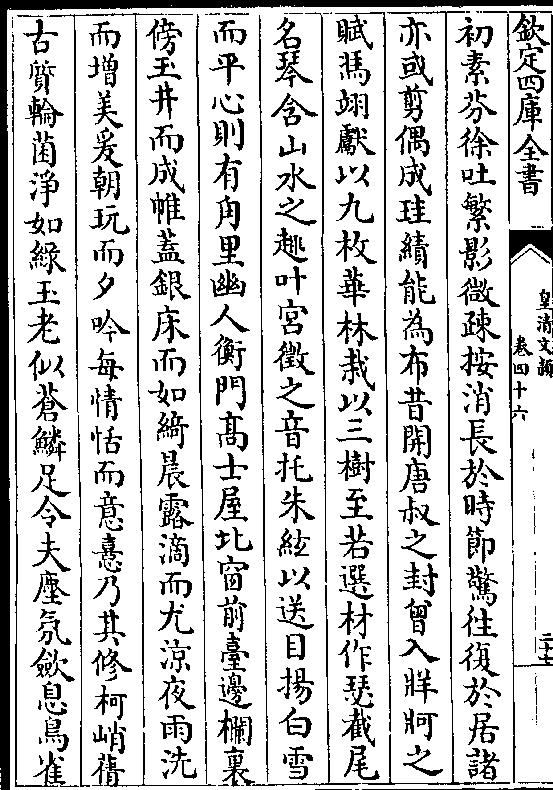 欽定四庫全書
皇清文穎
卷四十六
二十七
初素芬徐吐繁影微疎按消長於時節驚往復於居諸
亦或剪偶成珪績能為布昔開唐叔之封曾入牂牁之
賦馮翊獻以九枚華林栽以三樹至若選材作琴截尾
名琴含山水之趣叶宮徵之音托朱絃以送目揚白雪
而平心則有角里幽人衡門高士屋北窗前臺邊欄裏
傍玉井而成帷蓋銀床而如綺晨露滴而尤涼夜雨洗
而增美爰朝玩而夕吟每情恬而意憙乃其修柯峭蒨
古質輪菌淨如綠玉老似蒼鱗足令夫塵氛斂息鳥雀